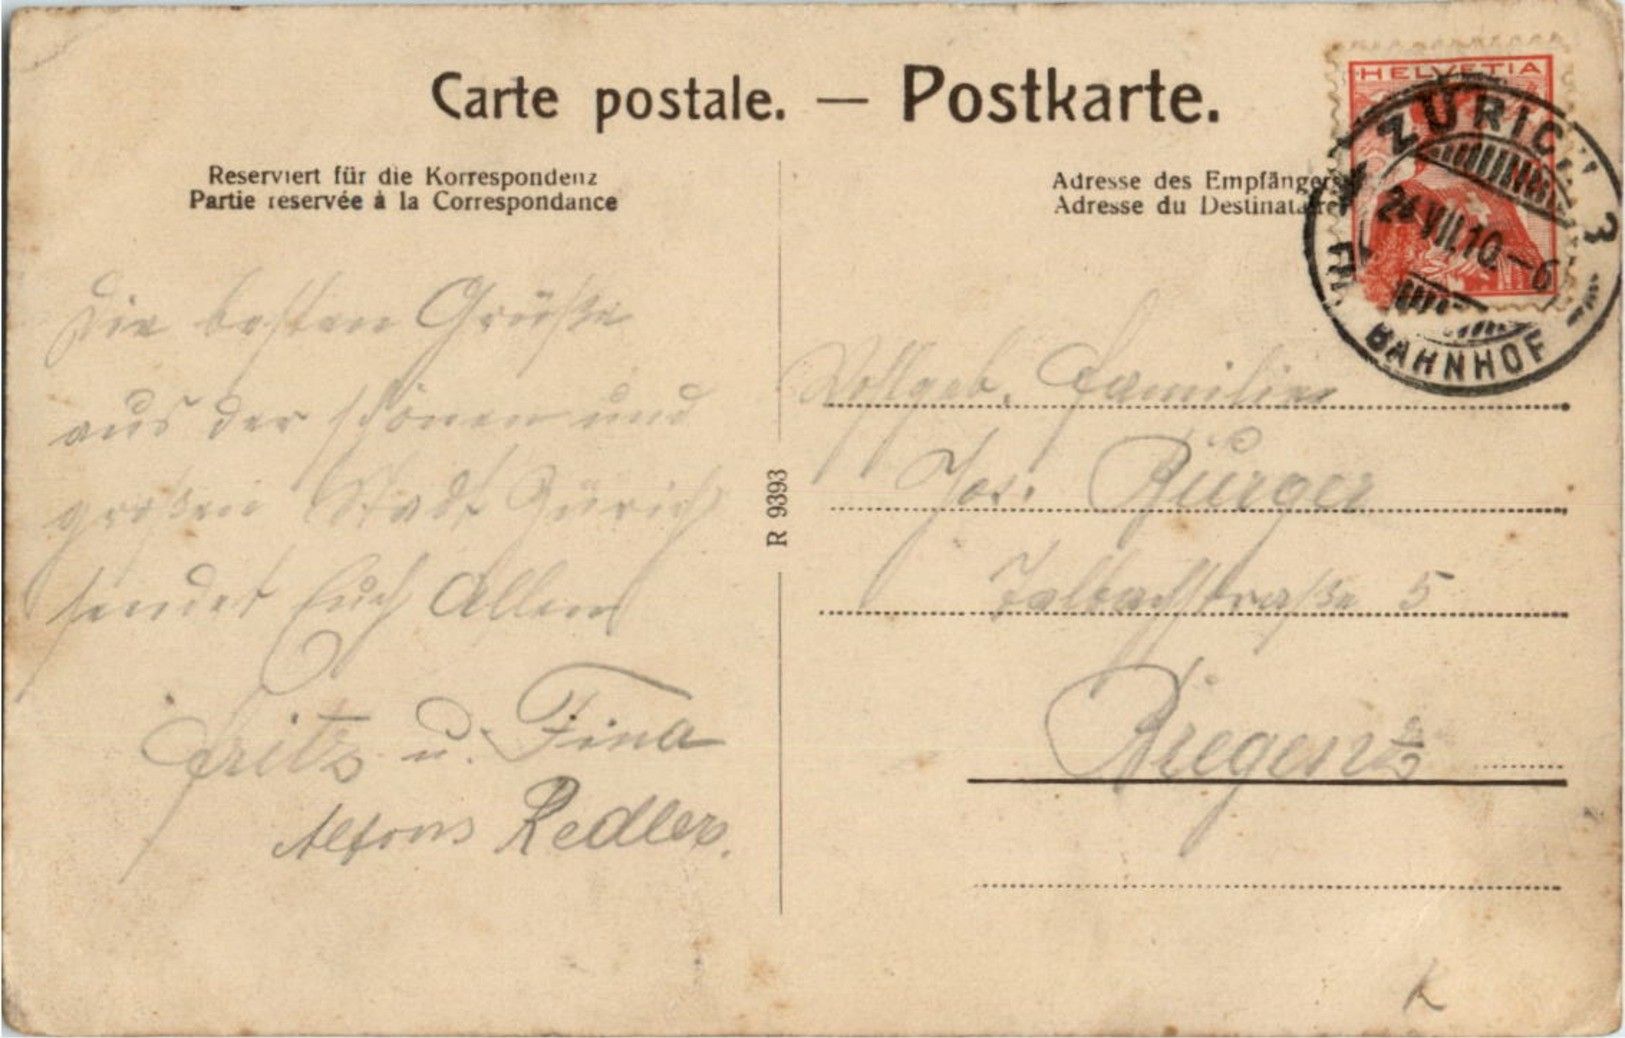 Carte postale. — Postkarte.
Reserviert für die Korrespondenz
Partie reservée à la Correspondance
Adresse des Empfängers
Adresse du Destinataire
HELVETIA
ZÜRICH 3
24.VII.10.–6
BAHNHOF
Die besten Grüße
aus der schönen und
großen Stadt Zürich
sendet Euch Allen
Fritz u. Fina
Alfons Redler.
R 9393
Wohlgeb. Familie
Jos. Bürger
5
Bregenz